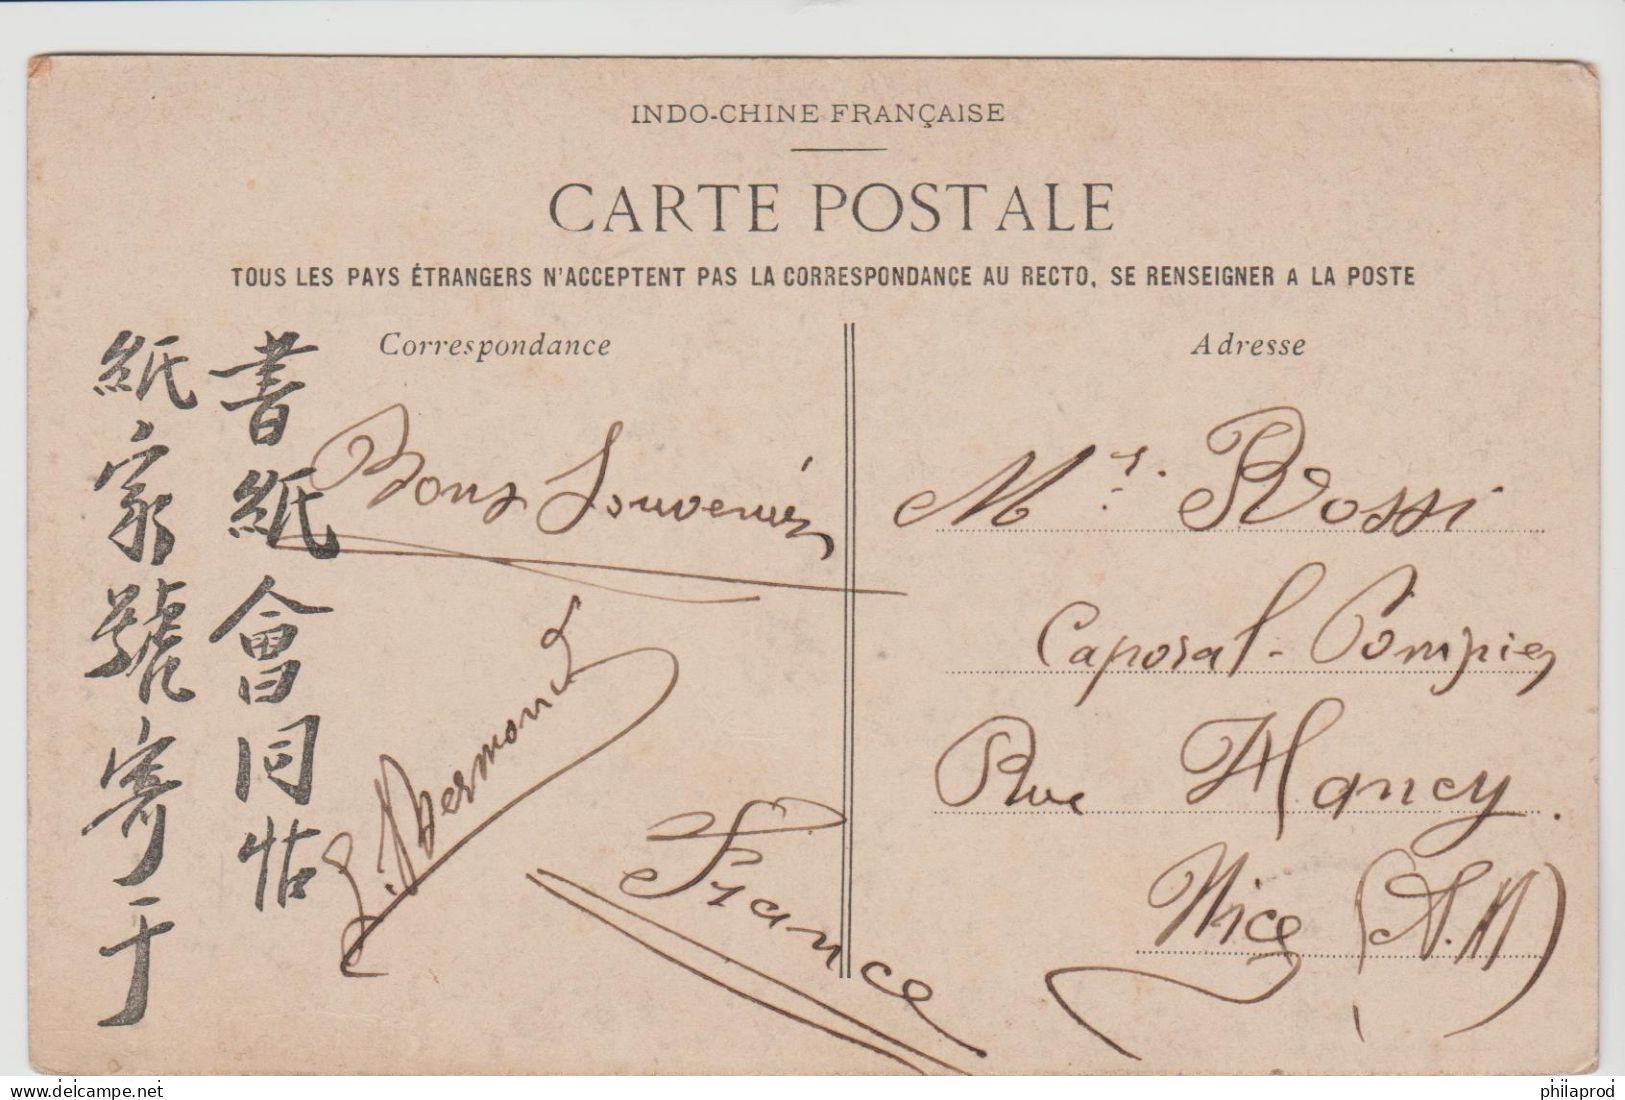 INDO-CHINE FRANÇAISE
CARTE POSTALE
TOUS LES PAYS ÉTRANGERS N'ACCEPTENT PAS LA CORRESPONDANCE AU RECTO, SE RENSEIGNER A LA POSTE
Correspondance
Adresse
書紙會同怗
紙家號寄于
Bons Souvenirs
France
Mr. Rossi
Caporal-Pompier
Rue Hancy
Nice (A.M)
Delcampe.net
philaprod